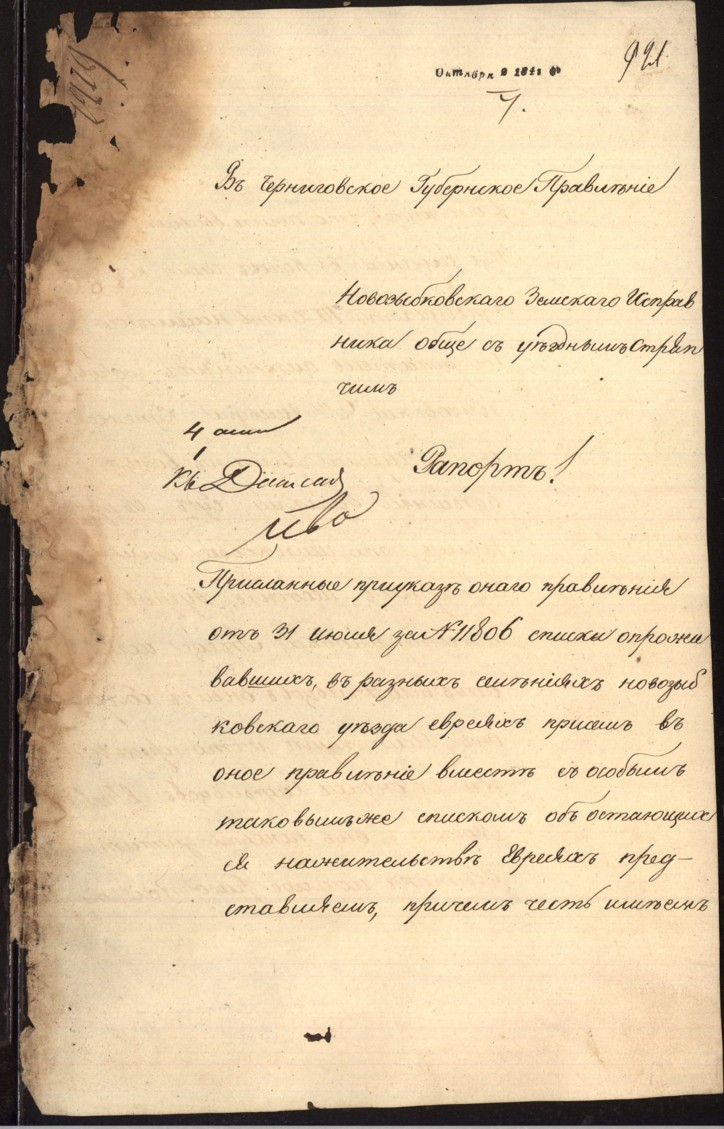 Октября 9 184
921.
7.
Въ Черниговское Губернское Правленіе
Новозыбковскаго Земскаго Исправ
ника обще съ уѣзднымъ Стряп
чимъ
4
Рапортъ!
Къ
Присланные приуказѣ онаго правленія
отъ 31 июля за №11806 списки опрожи
вавшихъ, въ разныхъ селѣніяхъ новозыб
ковскаго уѣзда евреяхъ присемъ въ
оное правлѣніе вместѣ съ особымъ
таковымъже спискомъ объ остающих
ся нажительствѣ Евреяхъ пред-
ставляемъ, причемъ честь имѣемъ